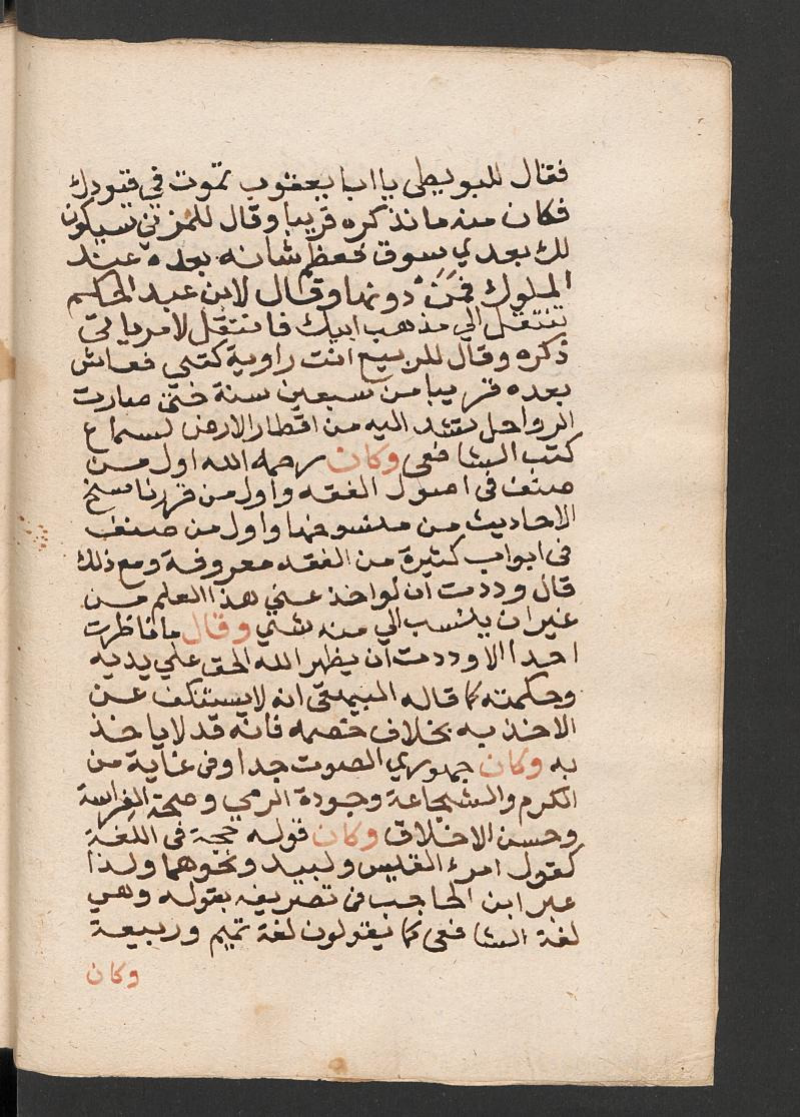 فقال للبويطى يا ابا يعقوب تموت في قيودك
فكان منه ما نذكره قريبا وقال للمزني سيكون
لك بعدي سوق فعظم شانه بعده عند
الملوك فمن دونها وقال لابن عبد الحكم
تنتقل الي مذهب ابيك فانتقل لامر ياتي
ذكره وقال للربيع انت راوية كتبي فعاش
بعده قريبا من سبعين سنة حتى صارت
الرواحل تشد اليه من اقطار الارض لسماع
كتب الشافعى وكان رحمه الله اول من
صنف فى اصول الفقه واول من قرر ناسخ
الاحاديث من منسوخها واول من صنف
فى ابواب كثيرة من الفقه معروفة ومع ذلك
قال وددت ان لو اخذ عني هذا العلم من
غير ان ينسب الي منه شئي وقال ما ناظرت
احدا الا وددت ان يظهر الله الحق علي يديه
وحكمته كما قاله البيهقى انه لا يستنكف عن
الاخذ به بخلاف خصمه فانه قد لا ياخذ
به وكان جهوري الصوت جدا وفى غاية من
الكرم والشجاعة وجودة الرمي وصحة الفراسة
وحسن الاخلاق وكان قوله حجة فى اللغة
كقول امرء القيس ولبيد ونحوهما ولذا
عبر ابن الحاجب فى تصريفه بقوله وهي
لغة الشافعى كما يقولون لغة تميم وربيعة
وكان